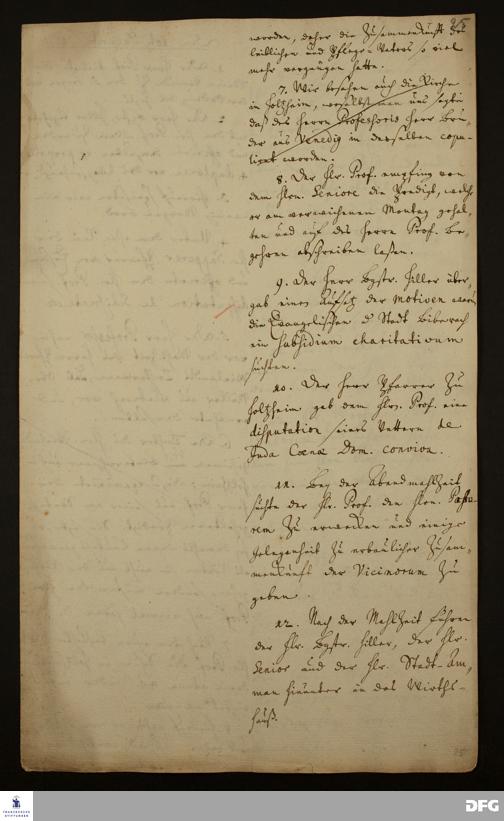 worden, daher die Zusammenkunfft des
leiblichen und Pflege-Vaters so viel
mehr vergnügen hatte.
7. Wir besahen auch die Kirche
in Holtzheim, woselbst man uns sagte
daß des Herrn Professoris Herr Bru-
der aus Venedig in derselben copu-
lirt worden.
8. Der Hr. Prof. empfing von
dem Hrn. Seniore die Predigt, welche
er am verwichenen Montag gehal-
ten und auf des Herrn Prof. be-
gehren abschreiben laßen.
9. Der Herr Bgstr. Hiller über-
gab einen Aufsatz der motiven
die Evangelischen d Stadt Biberach
ein Subsidium charitativum
suchten.
10. Der Herr Pfarrer zu
Holtzheim gab dem Hrn. Prof. eine
disputation seines Vettern de
Juda Cœnæ Dom. conviva.
11. Bey der Abendmahlzeit
suchte der Hr. Prof. den Hrn. Pasto-
rem zu erwecken und einige
gelegenheit zu erbaulicher Zusam-
menkunft der Vicinorum zu
geben.
12. Nach der Mahlzeit fuhren
der Hr. Bgstr. Hiller, der Hr.
Senior und der Hr. Stadt-Am-
man hinunter in das Wirths-
hauß.
FRANCKESCHE
STIFTUNGEN
DFG